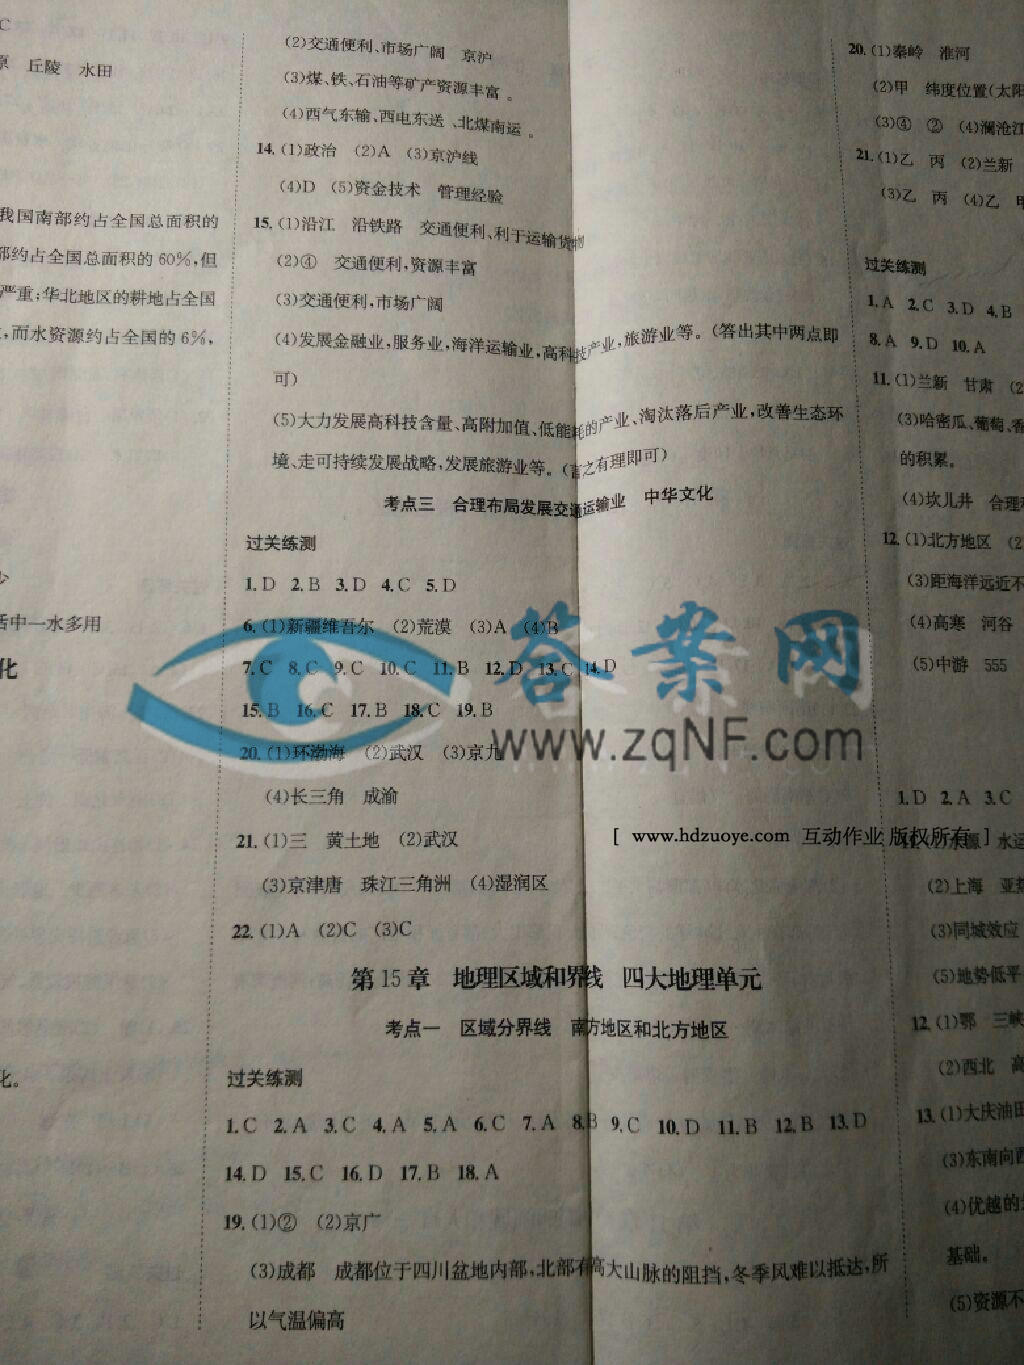 C
丘陵 水田
我国南部约占全国总面积的
部约占全国总面积的60%,但
严重;华北地区的耕地占全国
,而水资源约占全国的6%,
少
活中一水多用
化
化。
(2)交通便利、市场广阔 京沪
(3)煤、铁、石油等矿产资源丰富。
(4)西气东输、西电东送、北煤南运。
14.(1)政治 (2)A (3)京沪线
(4)D (5)资金技术 管理经验
15.(1)沿江 沿铁路 交通便利、利于运输货物
(2)④ 交通便利,资源丰富
(3)交通便利,市场广阔
(4)发展金融业,服务业,海洋运输业,高科技产业,旅游业等。(答出其中两点即
可)
(5)大力发展高科技含量、高附加值、低能耗的产业、淘汰落后产业,改善生态环
境、走可持续发展战略,发展旅游业等。(言之有理即可)
考点三 合理布局发展交通运输业 中华文化
过关练测
1.D 2.B 3.D 4.C 5.D
6.(1)新疆维吾尔 (2)荒漠 (3)A (4)B
7.C 8.C 9.C 10.C 11.B 12.D 13.C 14.D
15.B 16.C 17.B 18.C 19.B
20.(1)环渤海 (2)武汉 (3)京九
(4)长三角 成渝
21.(1)三 黄土地 (2)武汉
(3)京津唐 珠江三角洲 (4)湿润区
22.(1)A (2)C (3)C
第15章 地理区域和界线 四大地理单元
考点一 区域分界线 南方地区和北方地区
过关练测
1.C 2.A 3.C 4.A 5.A 6.C 7.A 8.B 9.C 10.D 11.B 12.B 13.D
14.D 15.C 16.D 17.B 18.A
19.(1)② (2)京广
(3)成都 成都位于四川盆地内部,北部有高大山脉的阻挡,冬季风难以抵达,所
以气温偏高
20.(1)秦岭 淮河
(2)甲 纬度位置(太阳
(3)④ ② (4)澜沧江
21.(1)乙 丙 (2)兰新
(3)乙 丙 (4)乙 甲
过关练测
1.A 2.C 3.D 4.B
8.A 9.D 10.A
11.(1)兰新 甘肃 (2
(3)哈密瓜、葡萄、香
的积累。
(4)坎儿井 合理利
12.(1)北方地区 (2
(3)距海洋远近不
(4)高寒 河谷
(5)中游 555
1.D 2.A 3.C
水源 水运
(2)上海 亚热
(3)同城效应
(5)地势低平
12.(1)鄂 三峡
(2)西北 高
13.(1)大庆油田
(3)东南向西
(4)优越的
基础。
(5)资源不
答案网
www.zqNF.com
[ www.hdzuoye.com 互动作业 版权所有 ]